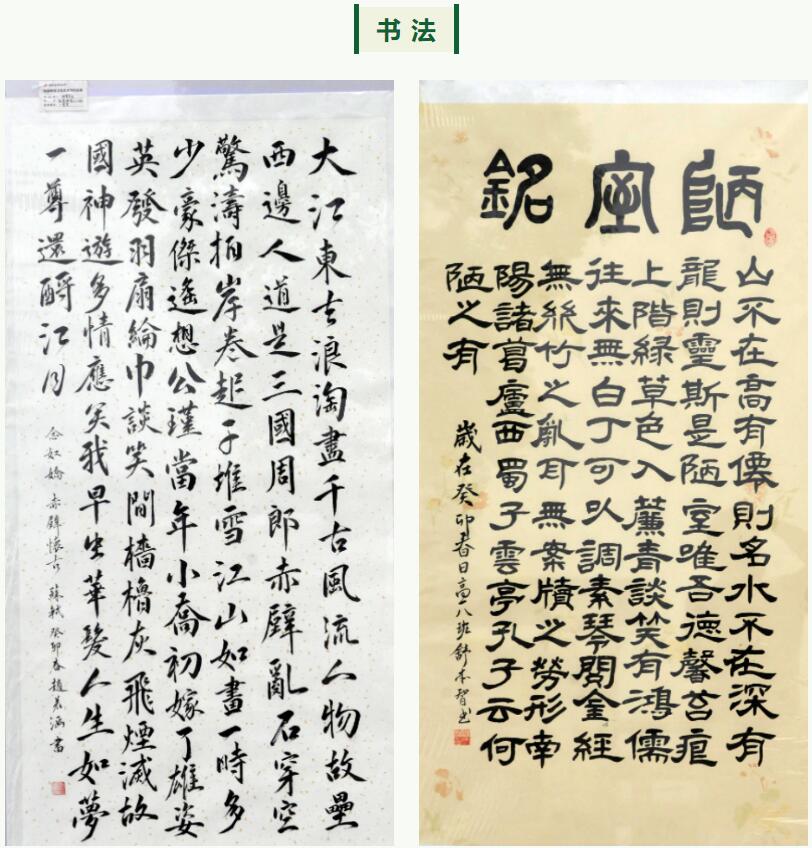 书法
大江東去浪淘盡千古風流人物故壘
西邊人道是三國周郎赤壁亂石穿空
驚濤拍岸卷起千堆雪江山如畫一時多
少豪傑遙想公瑾當年小喬初嫁了雄姿
英發羽扇綸巾談笑間檣櫓灰飛煙滅故
國神遊多情應笑我早生華髮人生如夢
一尊還酹江月
念奴嬌 赤壁懷古 蘇軾 癸卯春趙涵書
陋室銘
山不在高有僊則名水不在深有
龍則靈斯是陋室唯吾德馨苔痕
上階緑草色入簾青談笑有鴻儒
往來無白丁可以調素琴閱金經
無絲竹之亂耳無案牘之勞形南
陽諸葛廬西蜀子雲亭孔子云何
陋之有
歲在癸卯春日高一八班舒本智书